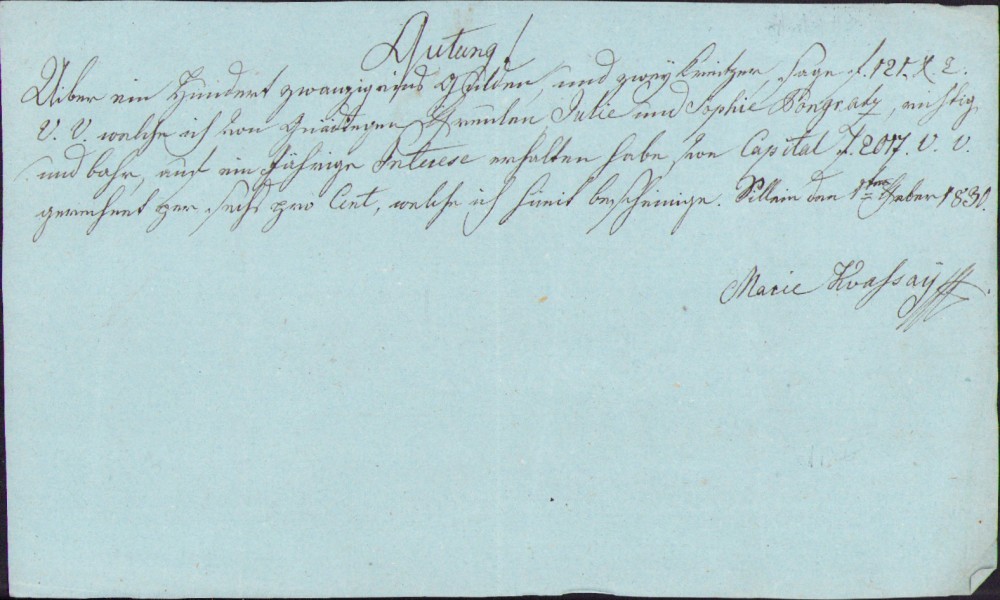 Quitung!
Uiber ein Hundert zwanzig eins Gulden, und zweÿ Kreutzer, sage f. 121. X. 2.
V. V. welche ich von Gnädigen Freulen Julie und Sophie Pongratz, richtig
und bahr, auf ein Jährige Interese erhalten habe, von Capital f. 2017. V. V.
gerechnet per sechs pro Cent, welche ich hiemit bescheinige. Sillein den 1ten 1830.
Marie Kvassaÿ